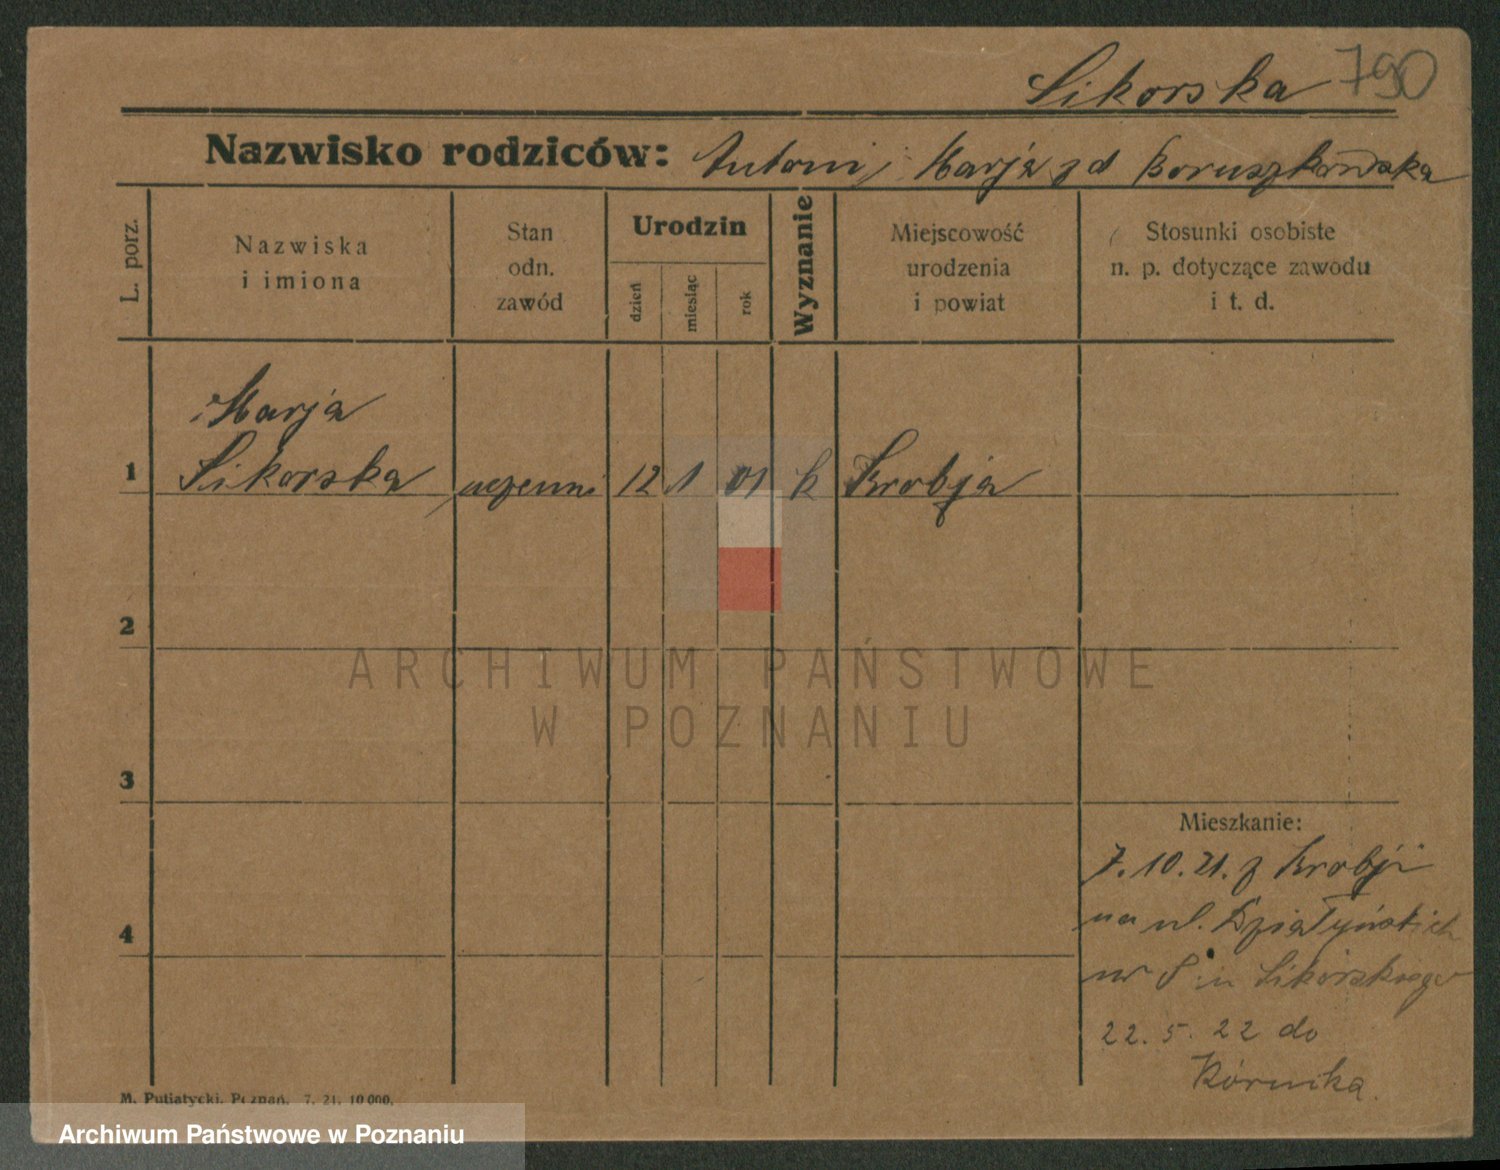 Sikorska 790
Nazwisko rodziców: Antoni i Marja zd Boruszkowska
L. porz.
Nazwiska
i imiona
Stan
odn.
zawód
Urodzin
dzień
miesiąc
rok
Wyznanie
Miejscowość
urodzenia
i powiat
Stosunki osobiste
n. p. dotyczące zawodu
i t. d.
Marja
1 Sikorska uczenni 12 1 01 k Krobja
2
ARCHIWUM PAŃSTWOWE
W POZNANIU
3
Mieszkanie:
7.10.21. z Krobji
na ul. Działyńskich
4
nr u Sikorskiego
22. 5. 22 do
Kórnika.
M. Putiatycki, Poznań. 7. 21. 10 000.
Archiwum Państwowe w Poznaniu